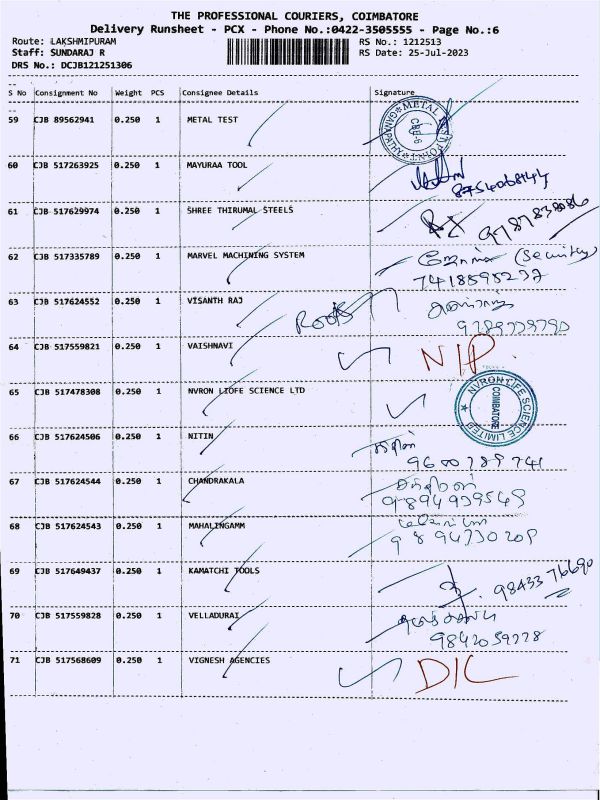 THE PROFESSIONAL COURIERS, COIMBATORE
Delivery Runsheet - PCX - Phone No.:0422-3505555 - Page No.:6
Route: LAKSHMIPURAM RS No.: 1212513
Staff: SUNDARAJ R RS Date: 25-Jul-2023
DRS No.: DCJB121251306
S No Consignment No Weight PCS Consignee Details Signature
59 CJB 89562941 0.250 1 METAL TEST METAL TEST POINT CBE-6
60 CJB 517263925 0.250 1 MAYURAA TOOL
61 CJB 517629974 0.250 1 SHREE THIRUMAL STEELS
62 CJB 517335789 0.250 1 MARVEL MACHINING SYSTEM (Security)
7418595237
63 CJB 517624552 0.250 1 VISANTH RAJ
Roots
64 CJB 517559821 0.250 1 VAISHNAVI NIP.
65 CJB 517478308 0.250 1 NVRON LIOFE SCIENCE LTD NVRON LIFE SCIENCE LIMITED COIMBATORE
66 CJB 517624506 0.250 1 NITIN
9600789741
67 CJB 517624544 0.250 1 CHANDRAKALA
9894939549
68 CJB 517624543 0.250 1 MAHALINGAMM
9894730209
69 CJB 517649437 0.250 1 KAMATCHI TOOLS 98433 76690
70 CJB 517559828 0.250 1 VELLADURAI
9842059778
71 CJB 517568609 0.250 1 VIGNESH AGENCIES D/L